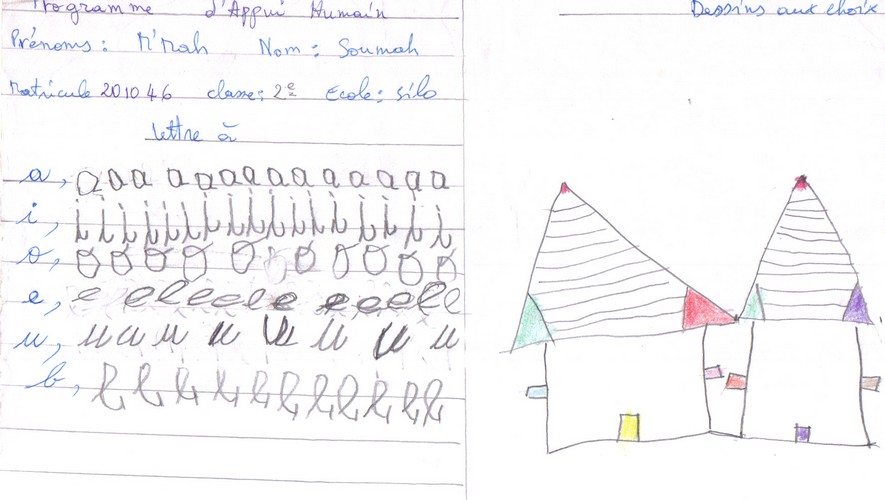 Programme d'Appui Humain
Prénoms : M'Mah Nom : Soumah
Matricule 201046 classe : 2e Ecole : silo
lettre à
a, a a a a a a a a a a a a a a a
i, i i i i i i i i i i i i i i i i
o, o o o o o o o o o o o
e, e e e e e e e e e e e e e e
u, u u u u u u u u
b, b b b b b b b b b b b b
Dessins aux choix